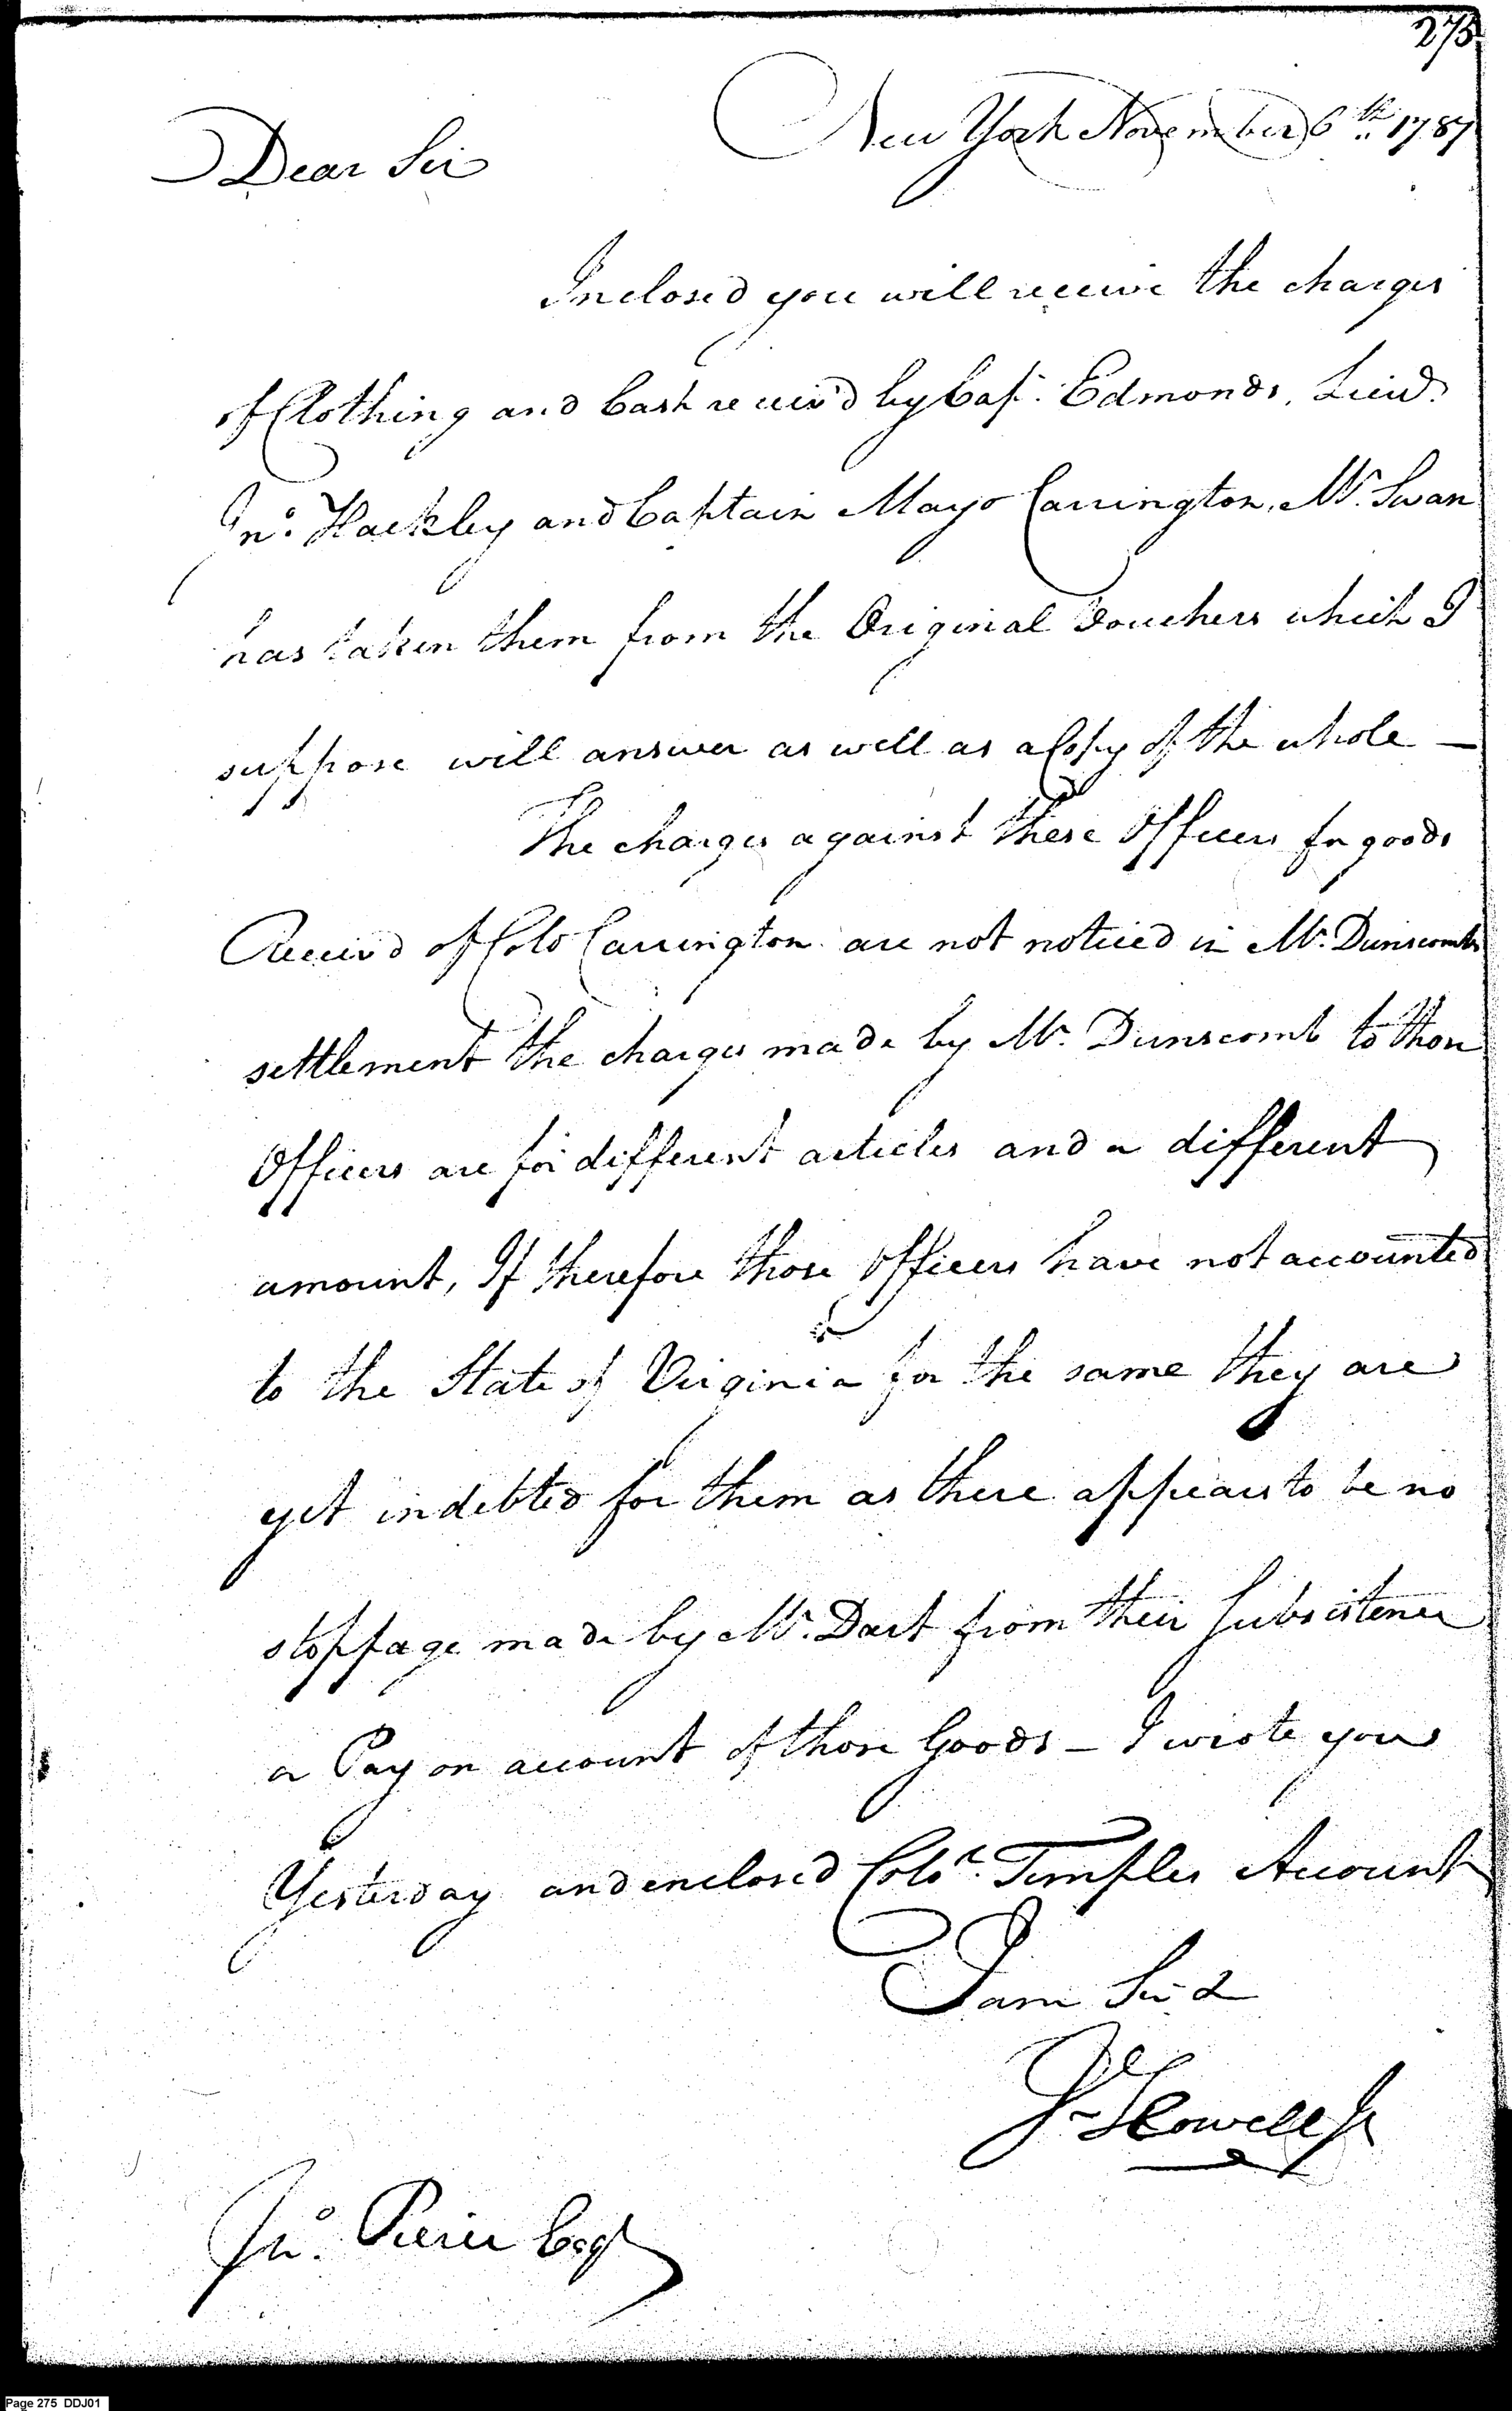 275
New York November 6th 1787
Dear Sir
Inclosed you will receive the charges
of Clothing and Cash receiv'd by Cap. Edmonds, Lieut.
Jno. Hackley and Captain Mayo Carrington, Mr. Swan
has taken them from the Original Vouchers which I
suppose will answer as well as a Copy of the whole —
The charges against these Officers for goods
Receiv'd of Colo Carrington are not noticed in Mr. Dunscombs
settlement the charges made by Mr. Dunscomb to those
Officers are for different articles and a different
amount, If therefore those Officers have not accounted
to the State of Virginia for the same they are
yet indebted for them as there appears to be no
stoppage made by Mr. Dart from their Subsistence
or Pay on account of those Goods — I wrote you
Yesterday and enclosed Colo. Temples Account
I am Sir &
J. Howell Jr
Jno. Pierce Esqr
Page 275 DDJ01